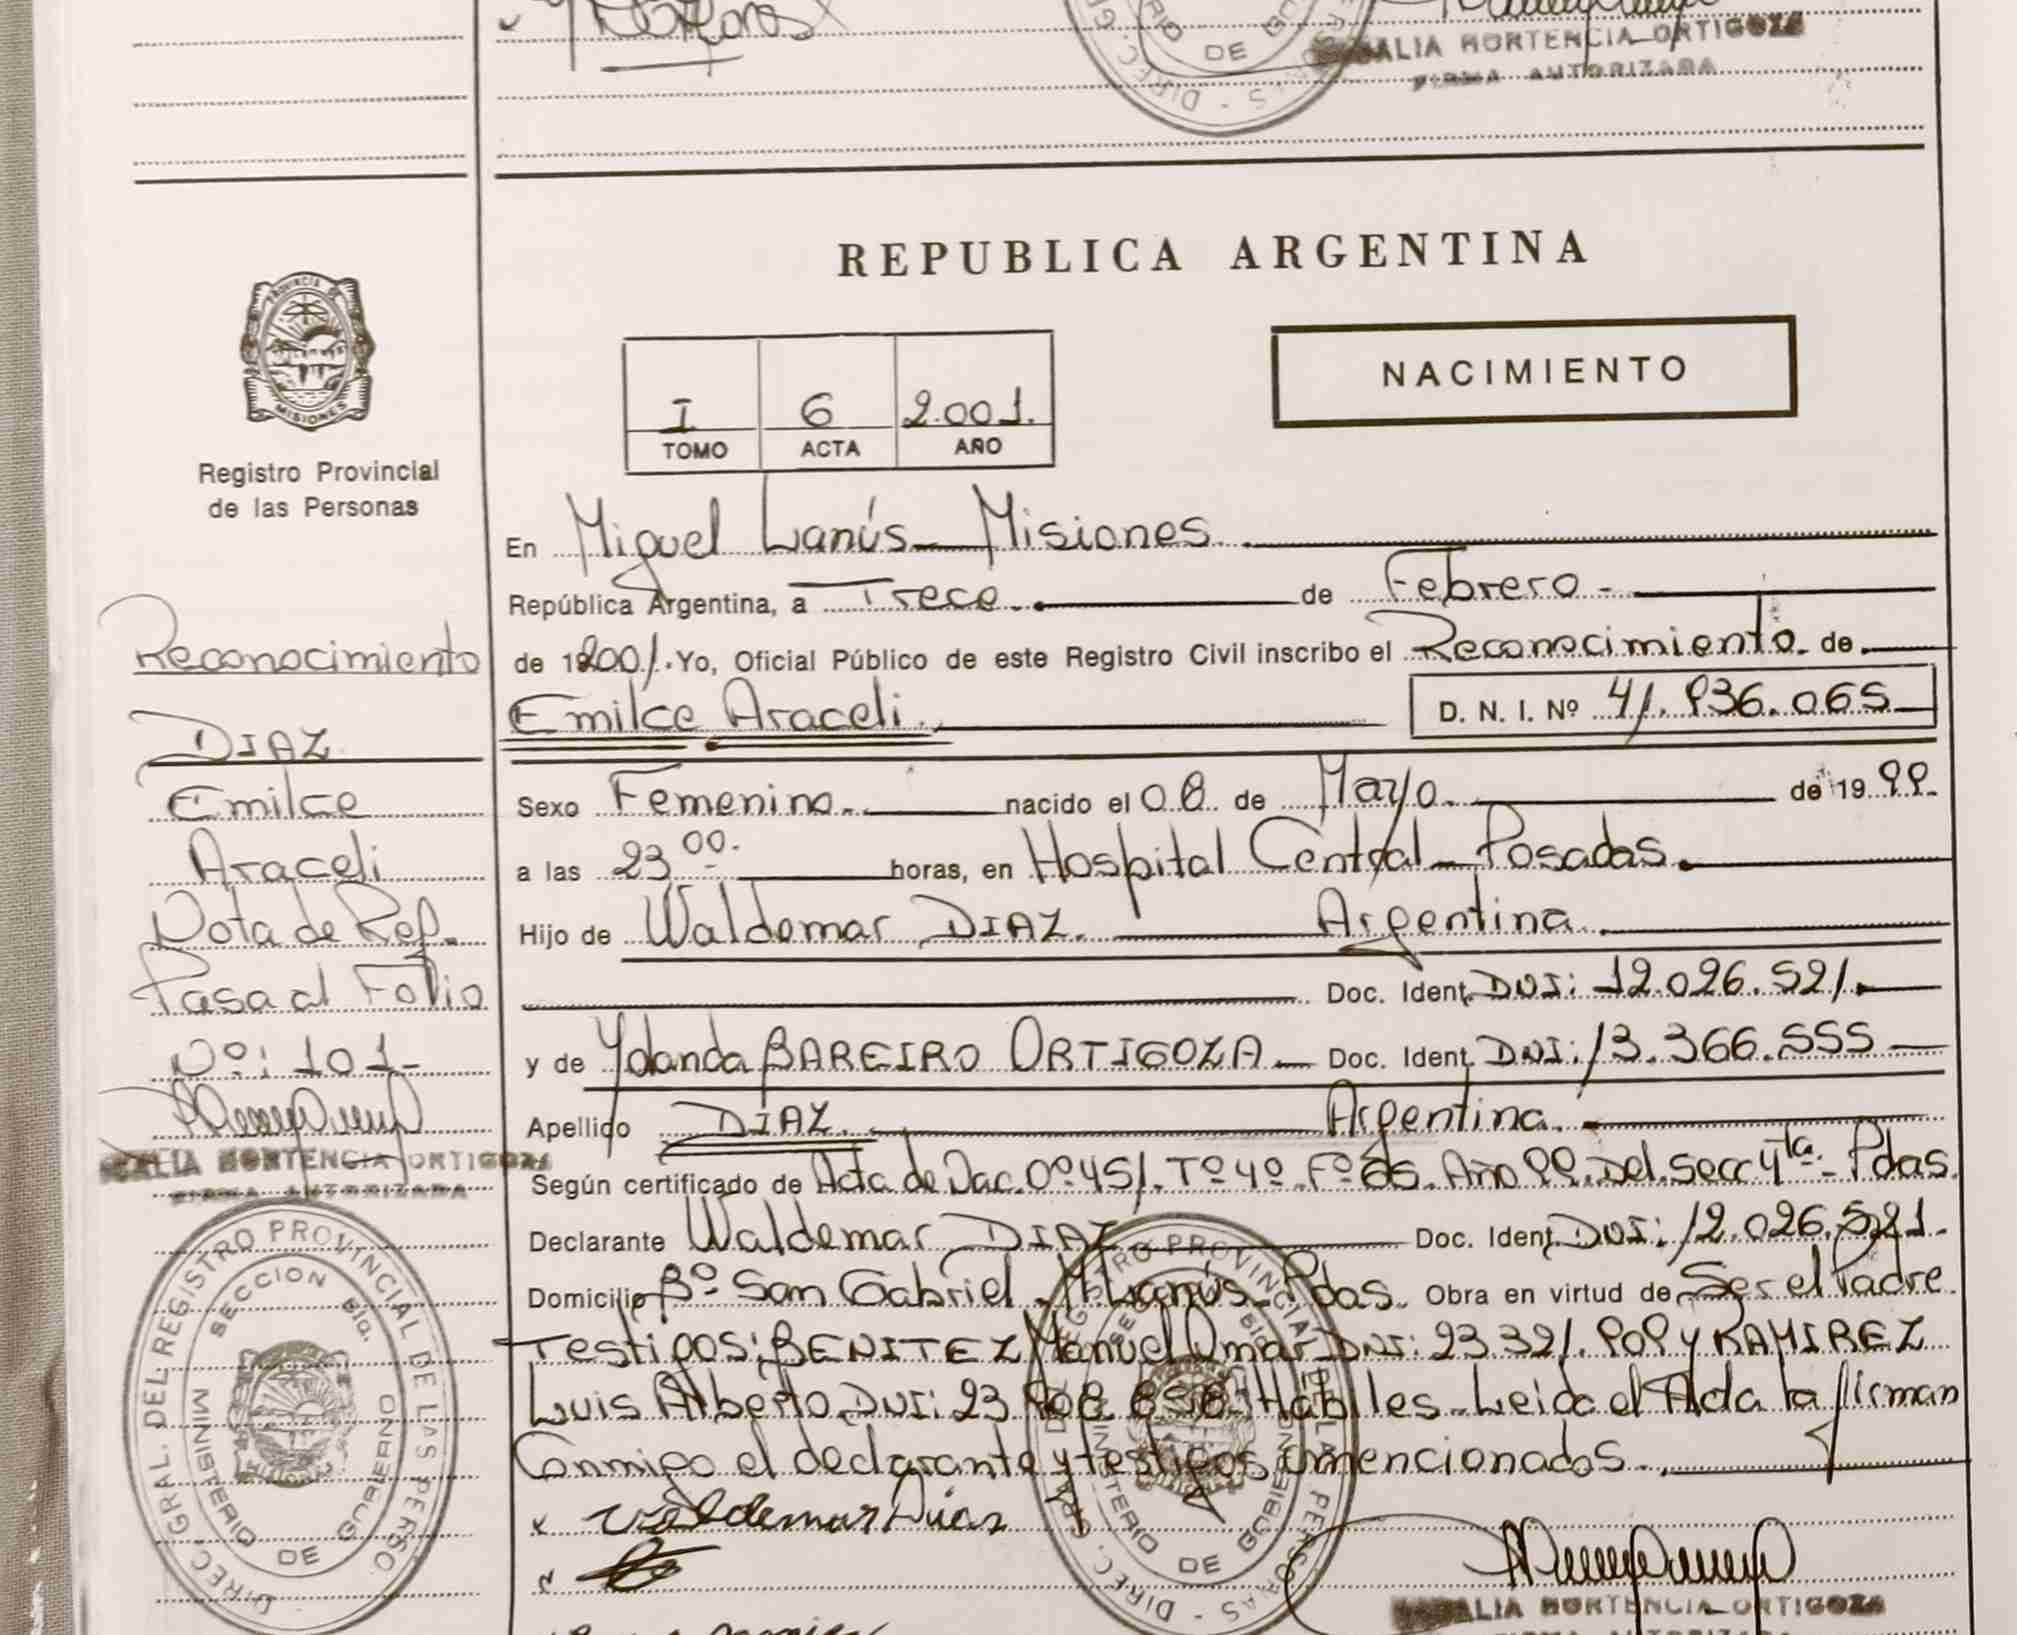 DE
ALIA HORTENCIA ORTIGOZA
FIRMA AUTORIZADA
REPUBLICA ARGENTINA
PROVINCIA DE
MISIONES
Registro Provincial
de las Personas
I 6 2.001.
TOMO ACTA AÑO
NACIMIENTO
En Miguel Lanús - Misiones.
República Argentina, a Trece. de Febrero -
de 19 2001. Yo, Oficial Público de este Registro Civil inscribo el Reconocimiento de
Emilce Araceli. D. N. I. Nº 41.936.065
Sexo Femenino. nacido el 08 de Mayo. de 1999.
a las 23 00. horas, en Hospital Central - Posadas.
Hijo de Waldemar DIAZ. Argentina.
Doc. Ident. DNI: 12.026.521.
y de Yolanda BAREIRO ORTIGOZA - Doc. Ident. DNI: 13.366.555
Apellido DIAZ. Argentina.
Según certificado de Acta de Nac. Nº 451. Tº 4º Fº 65. Año 99. Del. Secc 4ta - Pdas.
Declarante Waldemar DIAZ Doc. Ident. DNI: 12.026.521.
Domicilio Bº San Gabriel M. Lanús - Pdas. Obra en virtud de Ser el Padre
Testigos: BENITEZ Manuel Omar DNI: 23.321.909 y RAMIREZ
Luis Alberto DNI: 23 Hábiles - Leida el Acta la firman
Conmigo el declarante y testigos mencionados.
x Waldemar Diaz
x
ALIA HORTENCIA ORTIGOZA
Reconocimiento
DIAZ
Emilce
Araceli
Nota de Ref.
Pasa al Folio
Nº: 101-
ALIA HORTENCIA ORTIGOZA
FIRMA AUTORIZADA
DIREC. GRAL. DEL REGISTRO PROVINCIAL DE LAS PERSO.
SECCION
MINISTERIO DE GOBIERNO